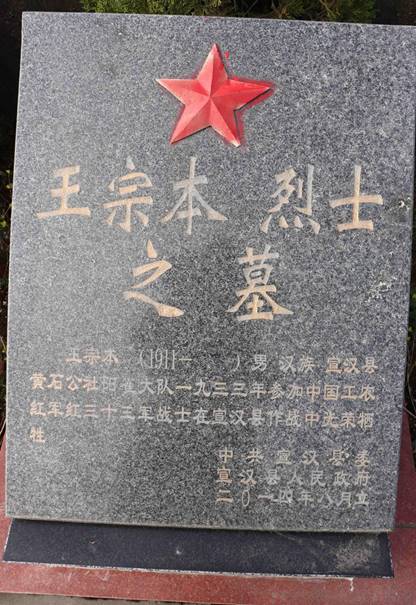 王宗本 烈士
之墓
王宗本（1911— ）男 汉族 宣汉县
黄石公社阳雀大队一九三三年参加中国工农
红军红三十三军战士在宣汉县作战中光荣牺
牲
中共宣汉县委
宣汉县人民政府
二0一四年八月立